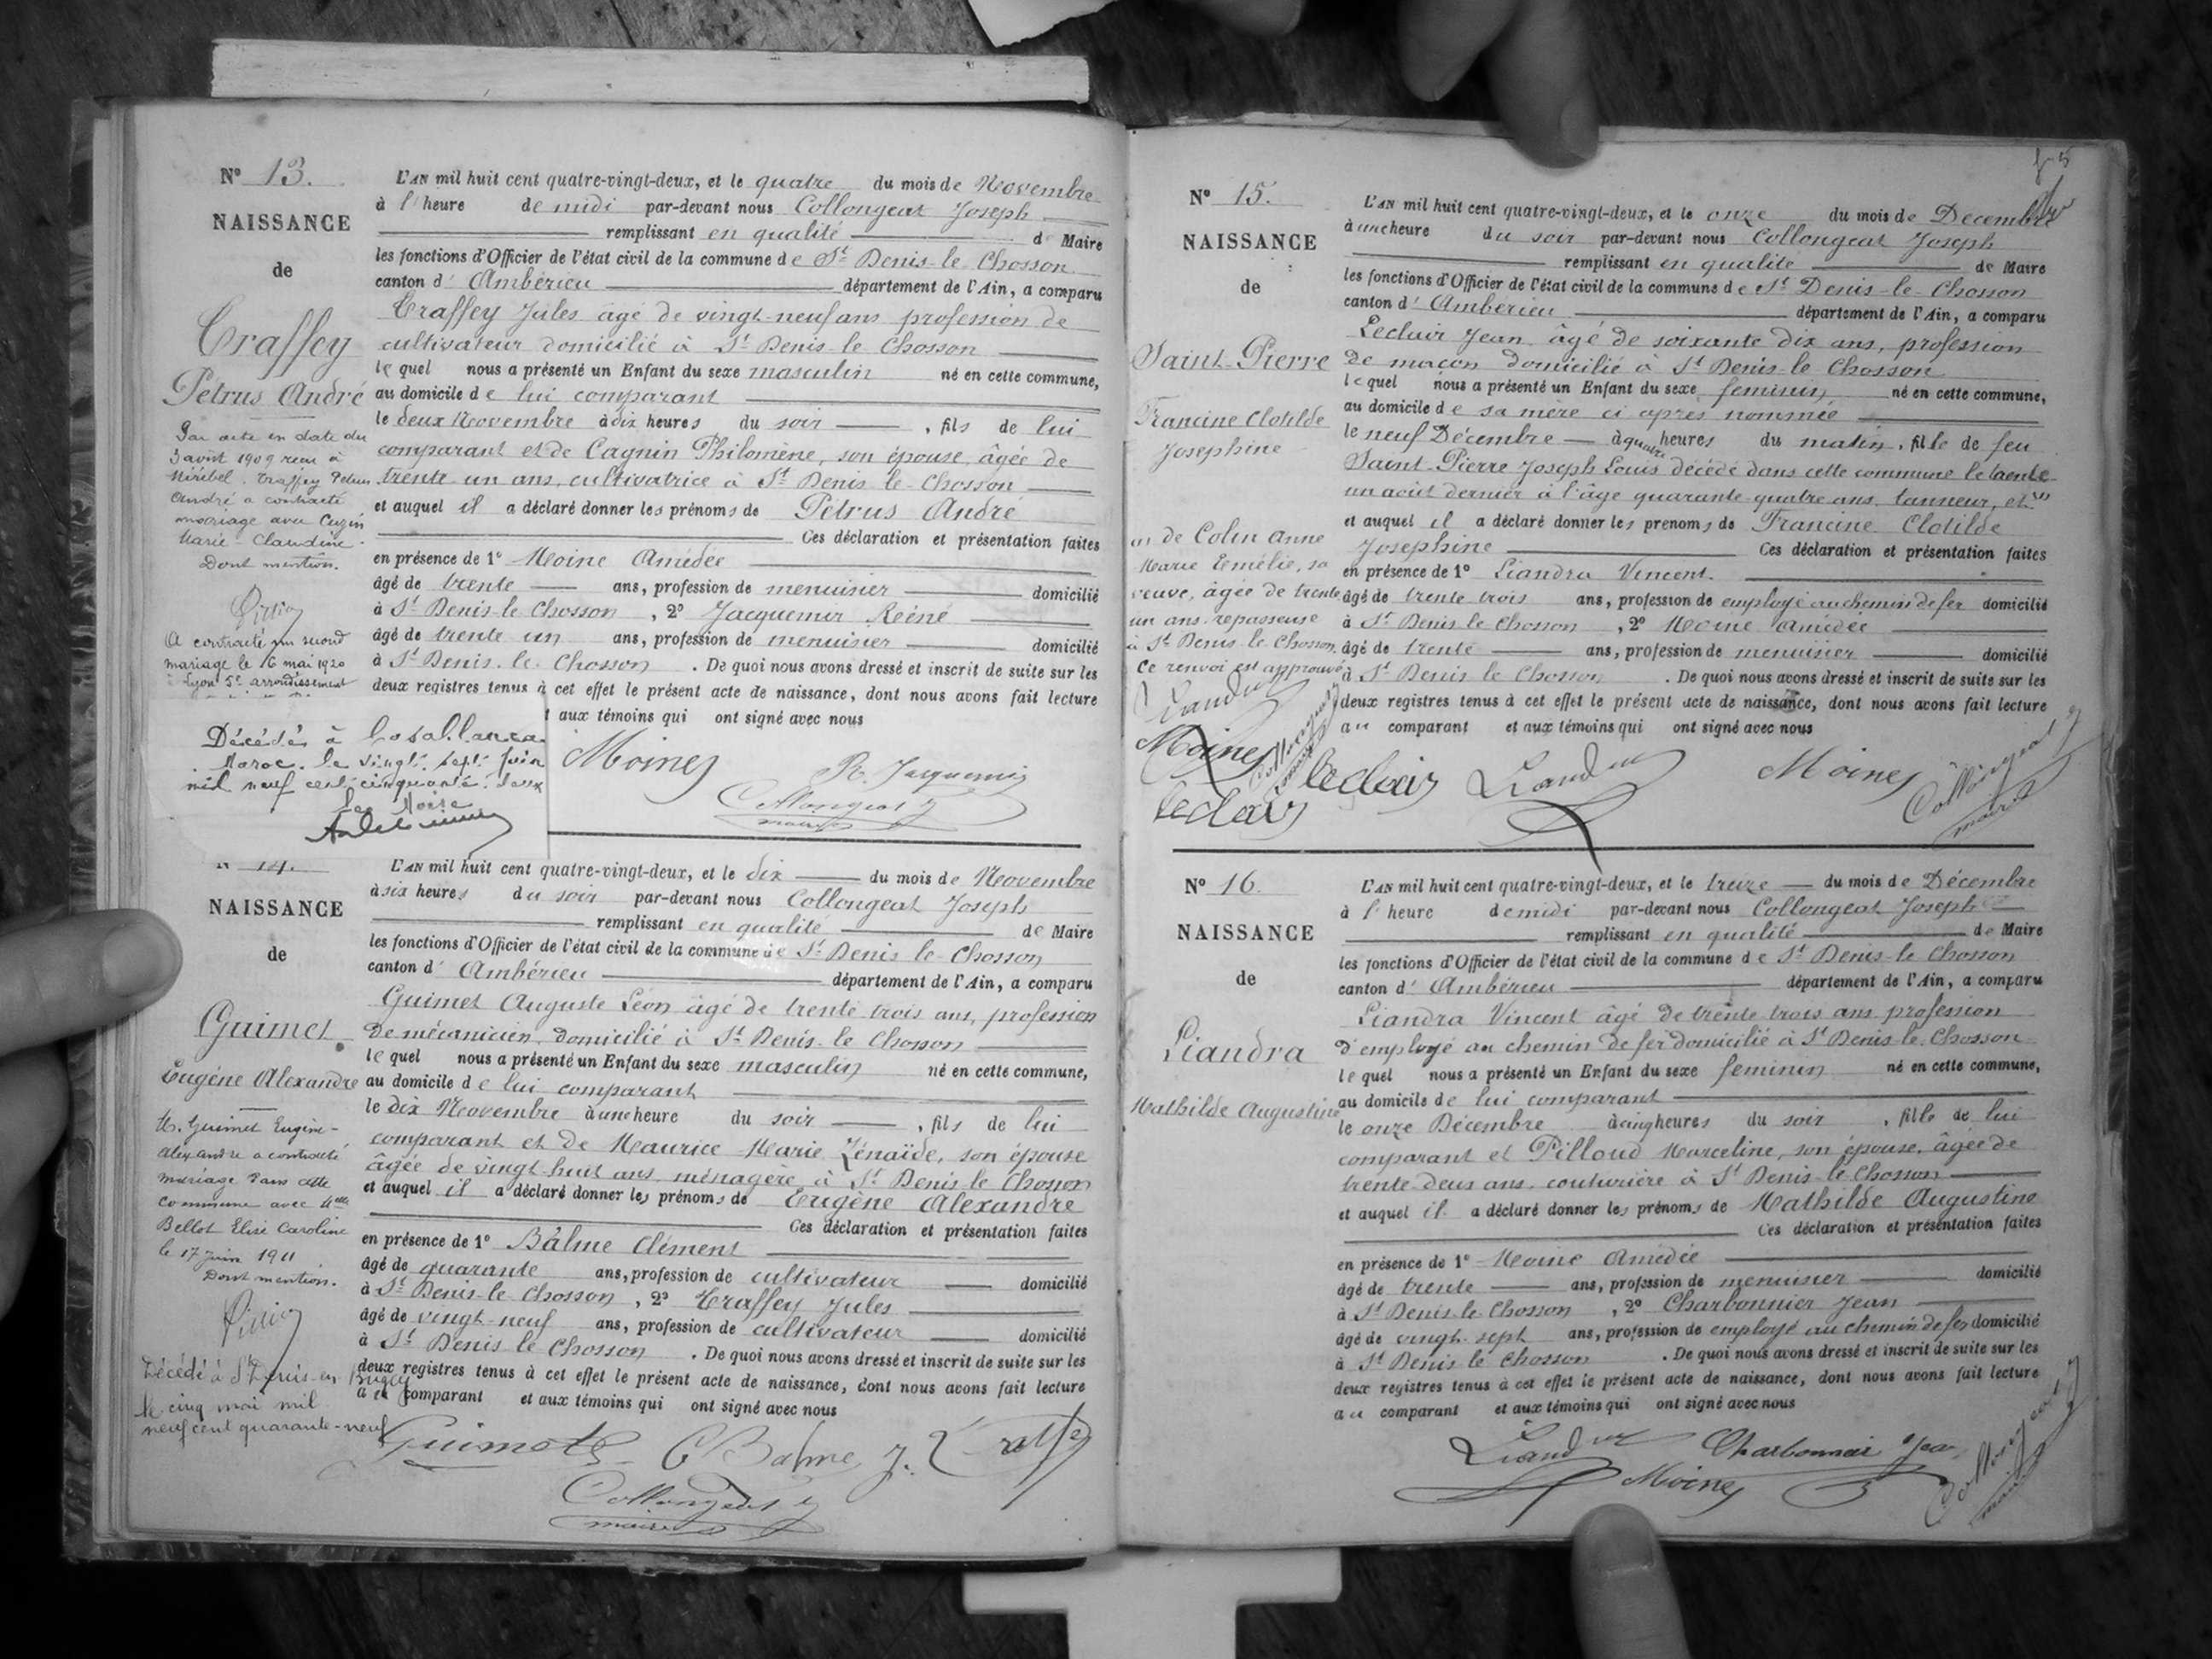 N° 13.
NAISSANCE
de
Traffey
Pétrus André
Par acte en date du
3 avril 1909 reçu à
Miribel, Traffey Pétrus
André a contracté
mariage avec Cuzin
Marie Claudine.
Dont mention.
A contracté un second
mariage le 6 mai 1920
à Lyon 5e arrondissement
Décédé à Casablanca
Maroc. le vingt sept juin
mil neuf cent cinquante deux
L'AN mil huit cent quatre-vingt-deux, et le quatre du mois de Novembre
à l' heure de midi par-devant nous Collongeat Joseph
remplissant en qualité de Maire
les fonctions d'Officier de l'état civil de la commune de St Denis-le Chosson
canton d' Ambérieu département de l'Ain, a comparu
Traffey Jules âgé de vingt-neuf ans profession de
cultivateur domicilié à St Denis-le Chosson
lequel nous a présenté un Enfant du sexe masculin né en cette commune,
au domicile de lui comparant
le deux Novembre à dix heures du soir, fils de lui
comparant et de Cagnin Philomène, son épouse, âgée de
trente un ans, cultivatrice à St Denis le-Chosson
et auquel il a déclaré donner les prénoms de Pétrus André
Ces déclaration et présentation faites
en présence de 1° Moine Amédée
âgé de trente ans, profession de menuisier domicilié
à St Denis-le Chosson, 2° Jacquemir Réené
âgé de trente un ans, profession de menuisier domicilié
à St Denis-le-Chosson. De quoi nous avons dressé et inscrit de suite sur les
deux registres tenus à cet effet le présent acte de naissance, dont nous avons fait lecture
t aux témoins qui ont signé avec nous
Moine
R. Jacquemir
Collongeat
maire
N° 14.
NAISSANCE
de
Guimet
Eugéne Alexandre
M. Guimet Eugène-
Alexandre a contracté
mariage dans cette
commune avec Melle
Bellot Elise Caroline
le 17 juin 1911
Dont mention.
Décédé à St Denis-en Bugey
le cinq mai mil
neuf cent quarante-neuf
L'AN mil huit cent quatre-vingt-deux, et le dix du mois de Novembre
à six heures du soir par-devant nous Collongeat Joseph
remplissant en qualité de Maire
les fonctions d'Officier de l'état civil de la commune de St Denis-le-Chosson
canton d' Ambérieu département de l'Ain, a comparu
Guimet Auguste Léon âgé de trente trois ans, profession
de mécanicien, domicilié à St Denis-le Chosson
lequel nous a présenté un Enfant du sexe masculin né en cette commune,
au domicile de lui comparant
le dix Novembre à une heure du soir, fils de lui
comparant et de Maurice Marie Zénaïde, son épouse
âgée de vingt huit ans ménagère à St Denis le Chosson
et auquel il a déclaré donner les prénoms de Eugène Alexandre
Ces déclaration et présentation faites
en présence de 1° Bâlme Clément
âgé de quarante ans, profession de cultivateur domicilié
à St Denis-le Chosson, 2° Traffey Jules
âgé de vingt-neuf ans, profession de cultivateur domicilié
à St Denis le Chosson. De quoi nous avons dressé et inscrit de suite sur les
deux registres tenus à cet effet le présent acte de naissance, dont nous avons fait lecture
au comparant et aux témoins qui ont signé avec nous
Guimet C Balme J. Traffey
Collongeat
maire
N° 15.
NAISSANCE
de
Saint-Pierre
Francine Clotilde
Josephine
de Colin Anne
Marie Emélie, sa
veuve, âgée de trente
un ans, repasseuse
à St Denis-le Chosson.
Ce renvoi est approuvé
Liandra
Moine
Collongeat
maire
Leclair
L'AN mil huit cent quatre-vingt-deux, et le onze du mois de Decembre
à une heure du soir par-devant nous Collongeat Joseph
remplissant en qualité de Maire
les fonctions d'Officier de l'état civil de la commune de St Denis-le-Chosson
canton d' Ambérieu département de l'Ain, a comparu
Leclair Jean âgé de soixante dix ans, profession
de maçon domicilié à St Denis-le Chosson
lequel nous a présenté un Enfant du sexe feminin né en cette commune,
au domicile de sa mère ci après nommée
le neuf Décembre à quatre heures du matin, fille de feu
Saint-Pierre Joseph Louis décédé dans cette commune le trente
un août dernier à l'âge quarante-quatre ans, tanneur, et
et auquel il a déclaré donner les prenoms de Francine Clotilde
Josephine Ces déclaration et présentation faites
en présence de 1° Liandra Vincent.
âgé de trente trois ans, profession de employé au chemin de fer domicilié
à St Denis-le Chosson, 2° Moine Amédée
âgé de trente ans, profession de menuisier domicilié
à St Denis le Chosson. De quoi nous avons dressé et inscrit de suite sur les
deux registres tenus à cet effet le présent acte de naissance, dont nous avons fait lecture
au comparant et aux témoins qui ont signé avec nous
leclair Liandra Moine Collongeat
maire
N° 16.
NAISSANCE
de
Liandra
Mathilde Augustine
L'AN mil huit cent quatre-vingt-deux, et le treize du mois de Décembre
à l' heure de midi par-devant nous Collongeat Joseph
remplissant en qualité de Maire
les fonctions d'Officier de l'état civil de la commune de St Denis-le Chosson
canton d' Ambérieu département de l'Ain, a comparu
Liandra Vincent âgé de trente trois ans profession
d'employé au chemin de fer domicilié à St Denis-le-Chosson
lequel nous a présenté un Enfant du sexe feminin né en cette commune,
au domicile de lui comparant
le onze Décembre à cinq heures du soir, fille de lui
comparant et Pilloud Marceline, son épouse, âgée de
trente deus ans, couturière à St Denis-le Chosson
et auquel il a déclaré donner les prénoms de Mathilde Augustine
Ces déclaration et présentation faites
en présence de 1° Moine Amédée
âgé de trente ans, profession de menuisier domicilié
à St Denis-le Chosson, 2° Charbonnier Jean
âgé de vingt-sept ans, profession de employé au chemin de fer domicilié
à St Denis le Chosson. De quoi nous avons dressé et inscrit de suite sur les
deux registres tenus à cet effet le présent acte de naissance, dont nous avons fait lecture
au comparant et aux témoins qui ont signé avec nous
Liandra Charbonnier Jean
Moine
Collongeat
maire